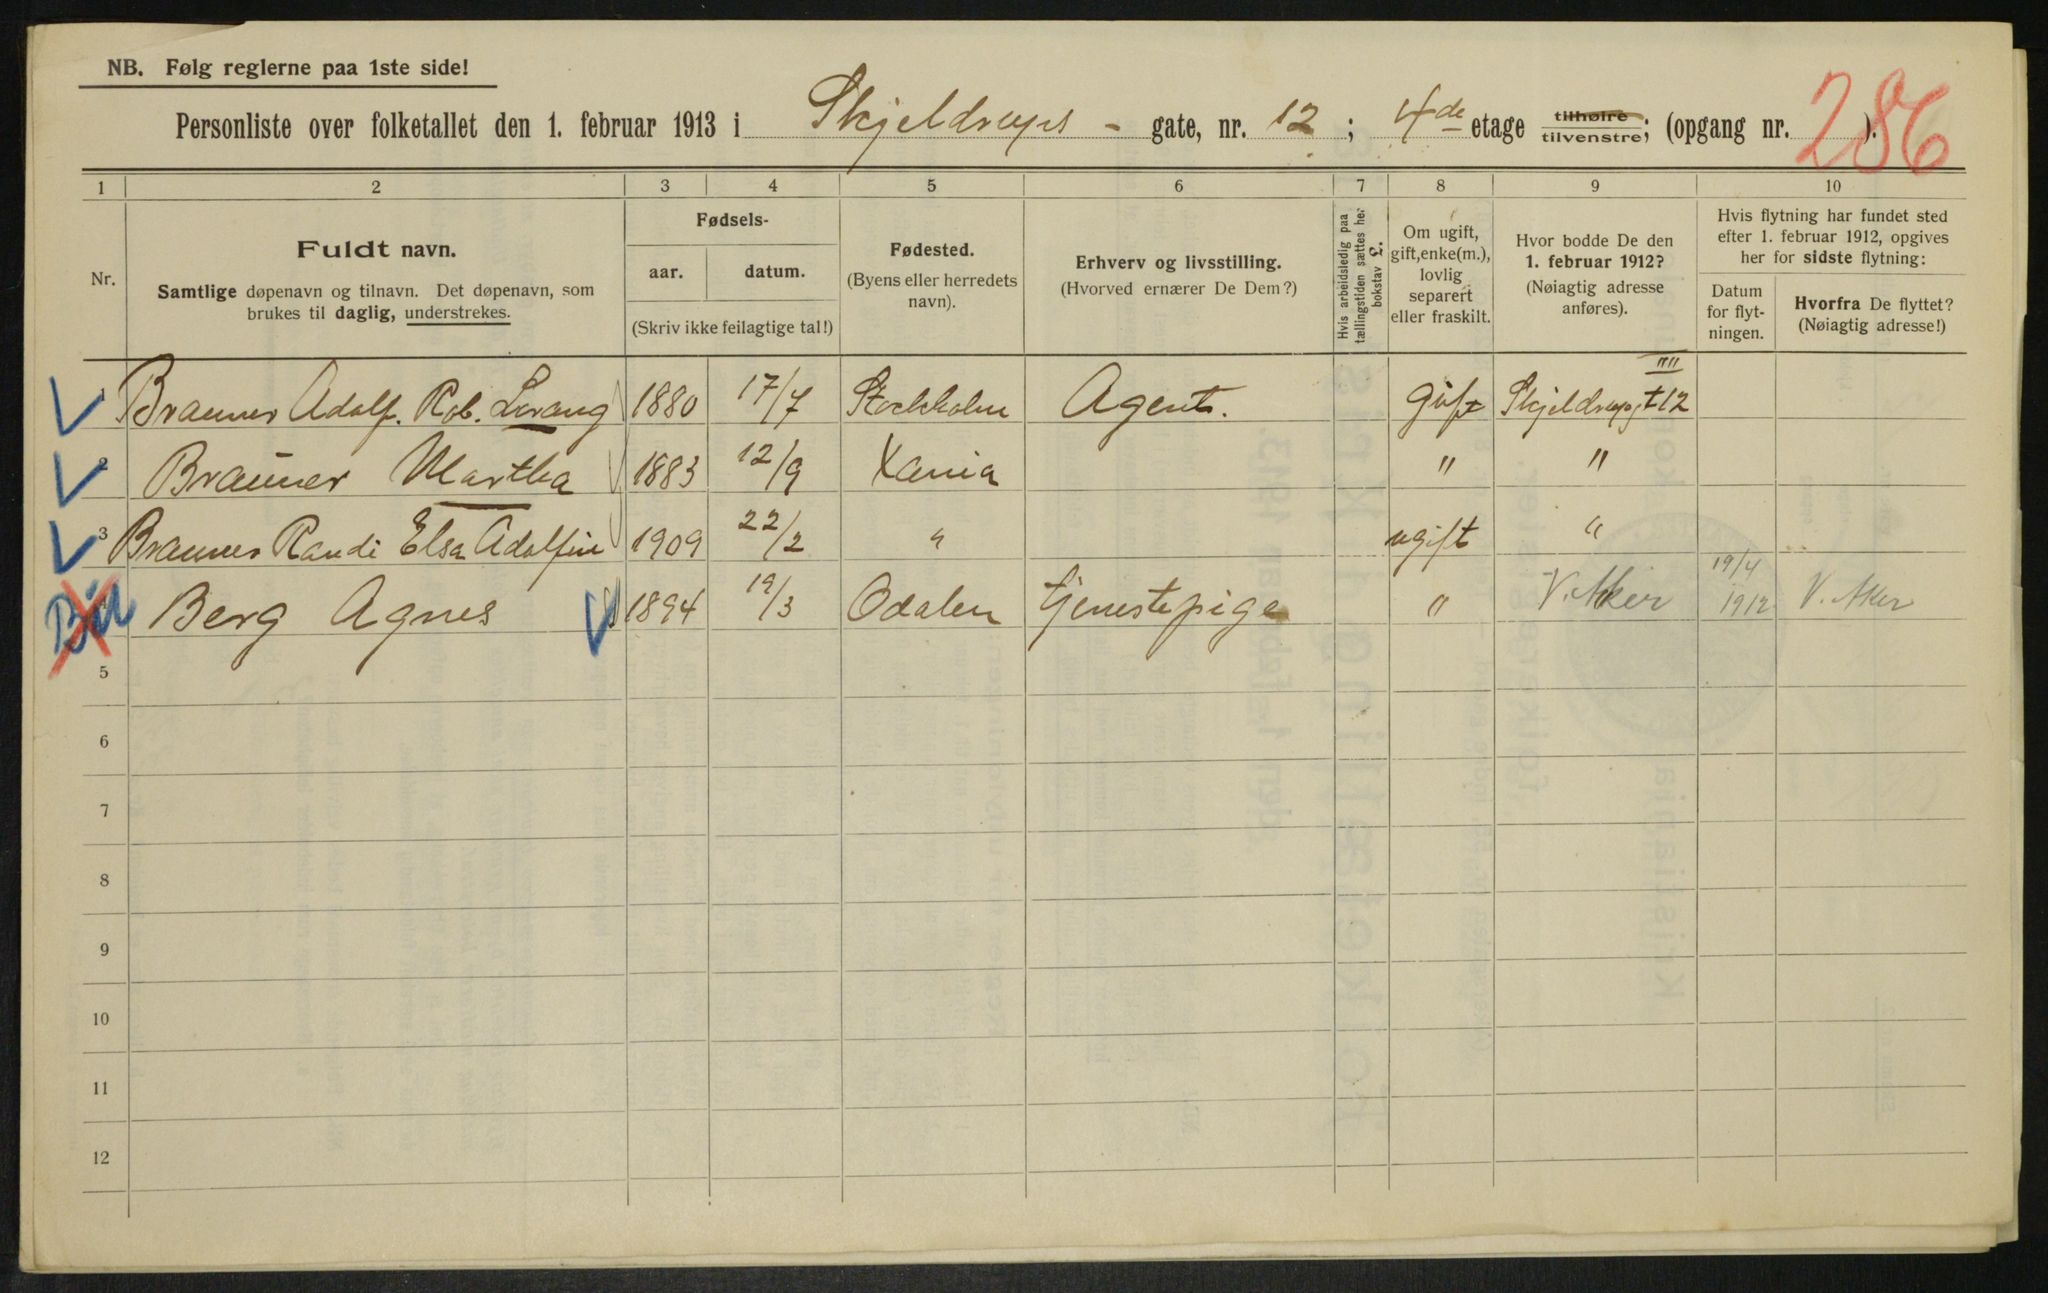 NB. Følg reglerne paa 1ste side!
Personliste over folketallet den 1. februar 1913 i Skjeldrups - gate, nr. 12 ; 4de etage tilhøire tilvenstre; (opgang nr. ).
286
1 2 3 4 5 6 7 8 9 10
Nr.
Fuldt navn.
Samtlige døpenavn og tilnavn. Det døpenavn, som
brukes til daglig, understrekes.
Fødsels-
aar. datum.
(Skriv ikke feilagtige tal!)
Fødested.
(Byens eller herredets
navn).
Erhverv og livsstilling.
(Hvorved ernærer De Dem?)
Hvis arbeidsledig paa
tællingstiden sættes her
bokstav L.
Om ugift,
gift, enke(m.),
lovlig
separert
eller fraskilt.
Hvor bodde De den
1. februar 1912?
(Nøiagtig adresse
anføres).
Hvis flytning har fundet sted
efter 1. februar 1912, opgives
her for sidste flytning:
Datum
for flyt-
ningen.
Hvorfra De flyttet?
(Nøiagtig adresse!)
1 Brauner Adolf. Rob. Lorang 1880 17/7 Stockholm Agent. Gift Skjeldrupgt 12 IIII
2 Brauner Martha 1883 12/9 Xania " "
3 Brauner Randi Elsa Adolfine 1909 22/2 " ugift "
4 Berg Agnes 1894 19/3 Odalen tjenestepige " V. Aker 19/4 1912 V. Aker
5
6
7
8
9
10
11
12